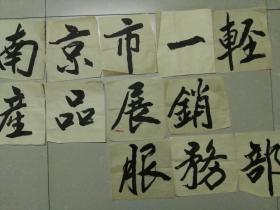 南京市一輕
産品展銷
服務部